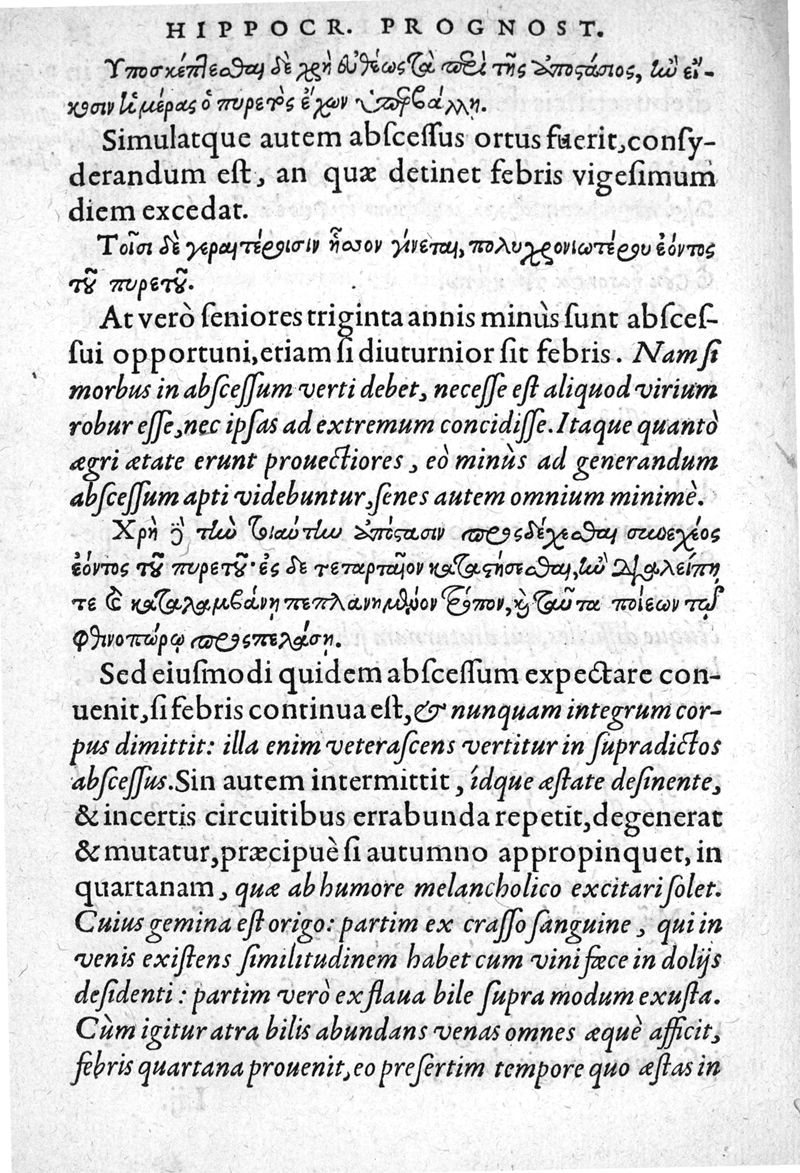 HIPPOCR. PROGNOST.
Υποσκέπτεσθαι δὲ χρὴ εὐθέως τὰ περὶ τῆς ἀποστάσιος, ἢν εἴ-
κοσιν ἡμέρας ὁ πυρετὸς ἔχων ὑπερβάλλη.
Simulatque autem abſceſſus ortus fuerit, conſy-
derandum eſt, an quæ detinet febris vigeſimum
diem excedat.
Τοῖσι δὲ γεραιτέροισιν ἧσσον γίνεται, πολυχρονιωτέρου ἐόντος
τοῦ πυρετοῦ.
At verò ſeniores triginta annis minùs ſunt abſceſ-
ſui opportuni, etiam ſi diuturnior ſit febris. Nam ſi
morbus in abſceſſum verti debet, neceſſe eſt aliquod virium
robur eſſe, nec ipſas ad extremum concidiſſe. Itaque quantò
ægri ætate erunt prouectiores, eò minùs ad generandum
abſceſſum apti videbuntur, ſenes autem omnium minimè.
Χρὴ δὲ τὴν τοιαύτην ἀπόστασιν προσδέχεσθαι συνεχέος
ἐόντος τοῦ πυρετοῦ· ἐς δὲ τεταρταῖον καταστήσεσθαι, ἢν διαλείπη
τε καὶ καταλαμβάνη πεπλανημένον τρόπον, καὶ ταῦτα ποιέων τῷ
φθινοπώρῳ προσπελάση.
Sed eiuſmodi quidem abſceſſum expectare con-
uenit, ſi febris continua eſt, & nunquam integrum cor-
pus dimittit: illa enim veteraſcens vertitur in ſupradictos
abſceſſus. Sin autem intermittit, idque æſtate deſinente,
& incertis circuitibus errabunda repetit, degenerat
& mutatur, præcipuè ſi autumno appropinquet, in
quartanam, quæ ab humore melancholico excitari ſolet.
Cuius gemina eſt origo: partim ex craſſo ſanguine, qui in
venis exiſtens ſimilitudinem habet cum vini fæce in dolijs
deſidenti: partim verò ex flaua bile ſupra modum exuſta.
Cùm igitur atra bilis abundans venas omnes æquè afficit,
febris quartana prouenit, eo preſertim tempore quo æſtas in